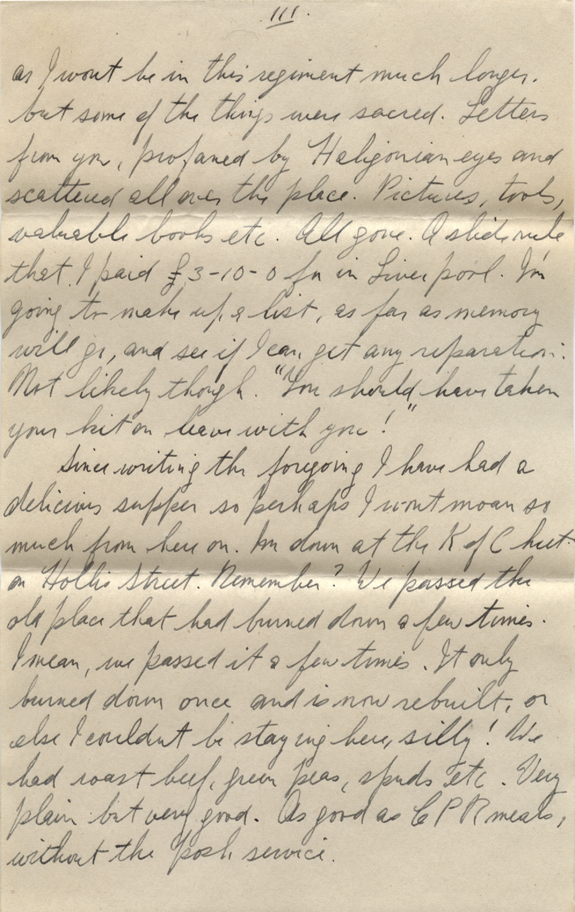 III.
as I wont be in this regiment much longer.
but some of the things were sacred. Letters
from you, profaned by Haligonian eyes and
scattered all over the place. Pictures, tools,
valuable books etc. All gone. A slide rule
that I paid £3-10-0 for in Liverpool. I'm
going to make up a list, as far as memory
will go, and see if I can get any reparation.
Not likely though. "You should have taken
your kit on leave with you!"
Since writing the foregoing I have had a
delicious supper so perhaps I wont moan so
much from here on. Im down at the K of C hut
on Hollis Street. Remember? We passed the
old place that had burned down a few times.
I mean, we passed it a few times. It only
burned down once and is now rebuilt, or
else I couldnt be staying here, silly! We
had roast beef, green peas, spuds etc. Very
plain but very good. As good as C P R meals,
without the posh service.